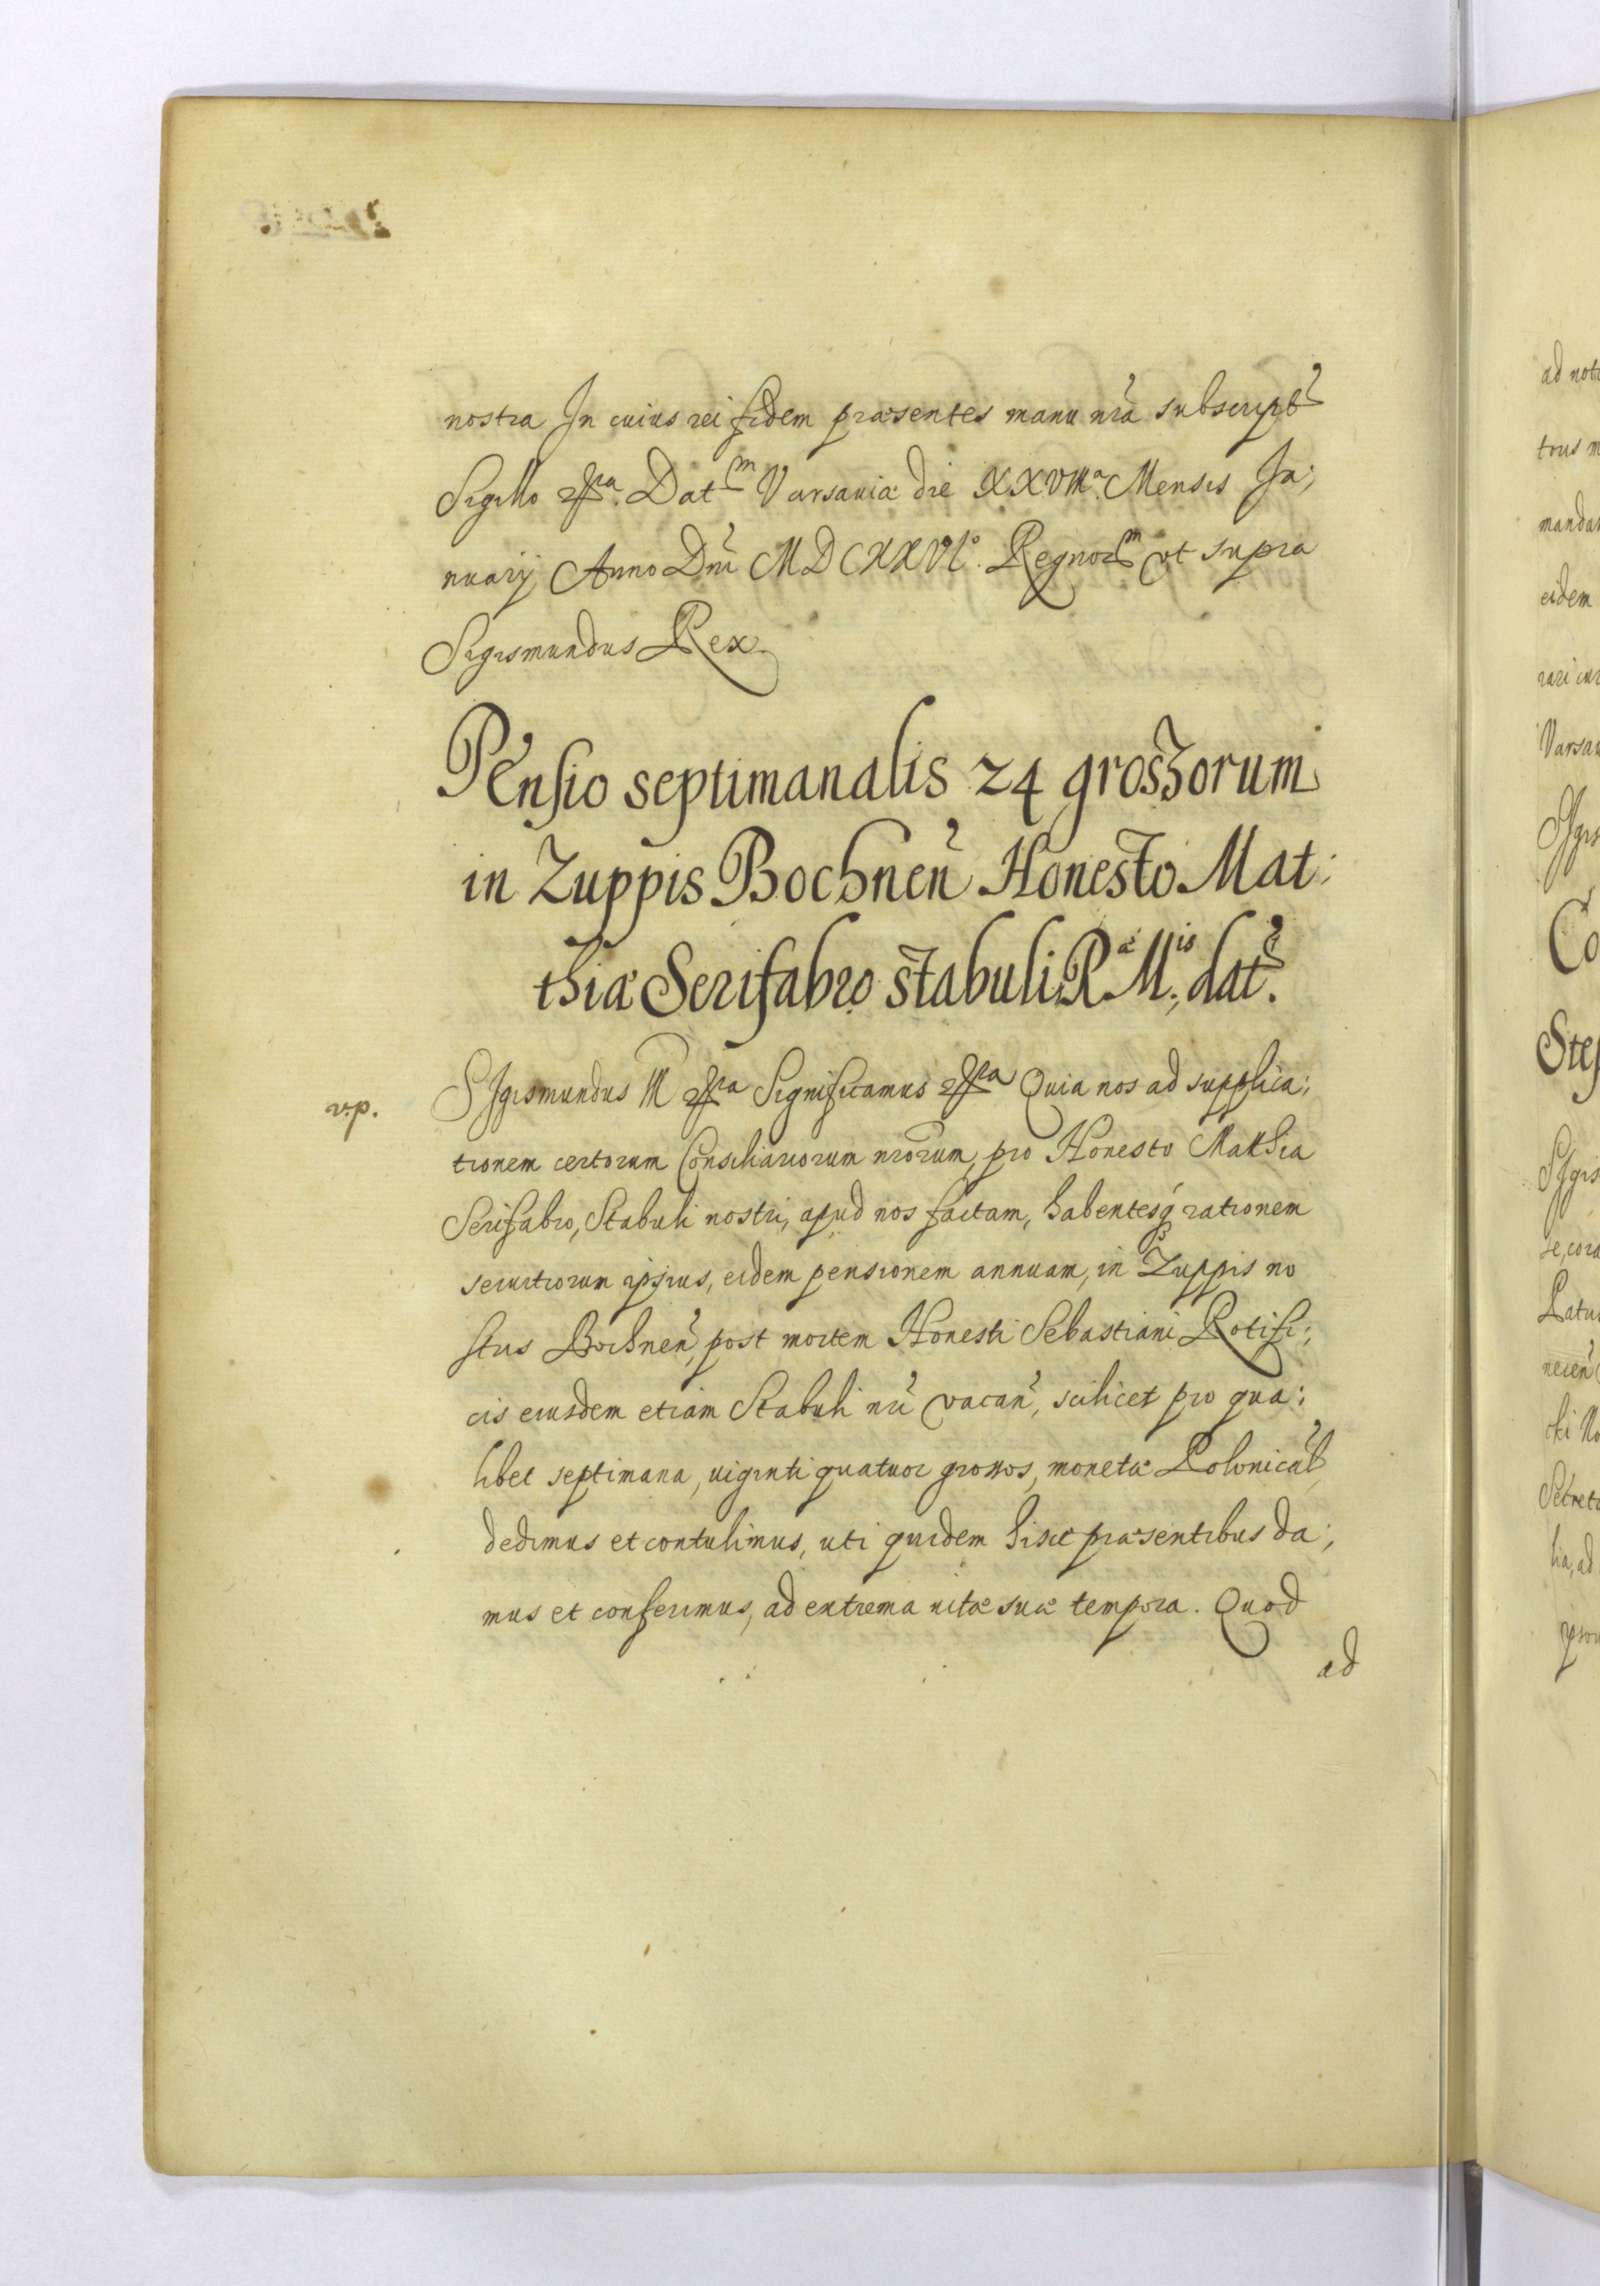 nostra In cuius rei fidem præsentes manu nrã subscript
Sigillo &ra. Datm Varsaviæ die XXVIIa. Mensis Ja;
nuarij Anno Dni MDCXXVIo. Regnorm vt supra
Sigismundus Rex.
Pensio septimanalis 24 grosszorum
in Zuppis Bochnen Honesto Mat;
thiæ Serifabro stabuli Ræ Mis; dat.
v.p. SIgismundus III &ra Significamus &ra Quia nos ad supplica;
tionem certorum Consiliariorum nrorum, pro Honesto Matthia
Serifabro, Stabuli nostri, apud nos factam, habentesq rationem
seruitiorum ipsius, eidem pensionem annuam, in Zuppis no
stris Bochnen, post mortem Honesti Sebastiani Rotifi;
cis eiusdem etiam Stabuli nri vacan, scilicet pro qua;
libet septimana, uiginti quatuor grossos, monetæ Polonical
dedimus et contulimus, uti quidem hisce præsentibus da;
mus et conferimus, ad extrema uitæ suæ tempora. Quod
ad